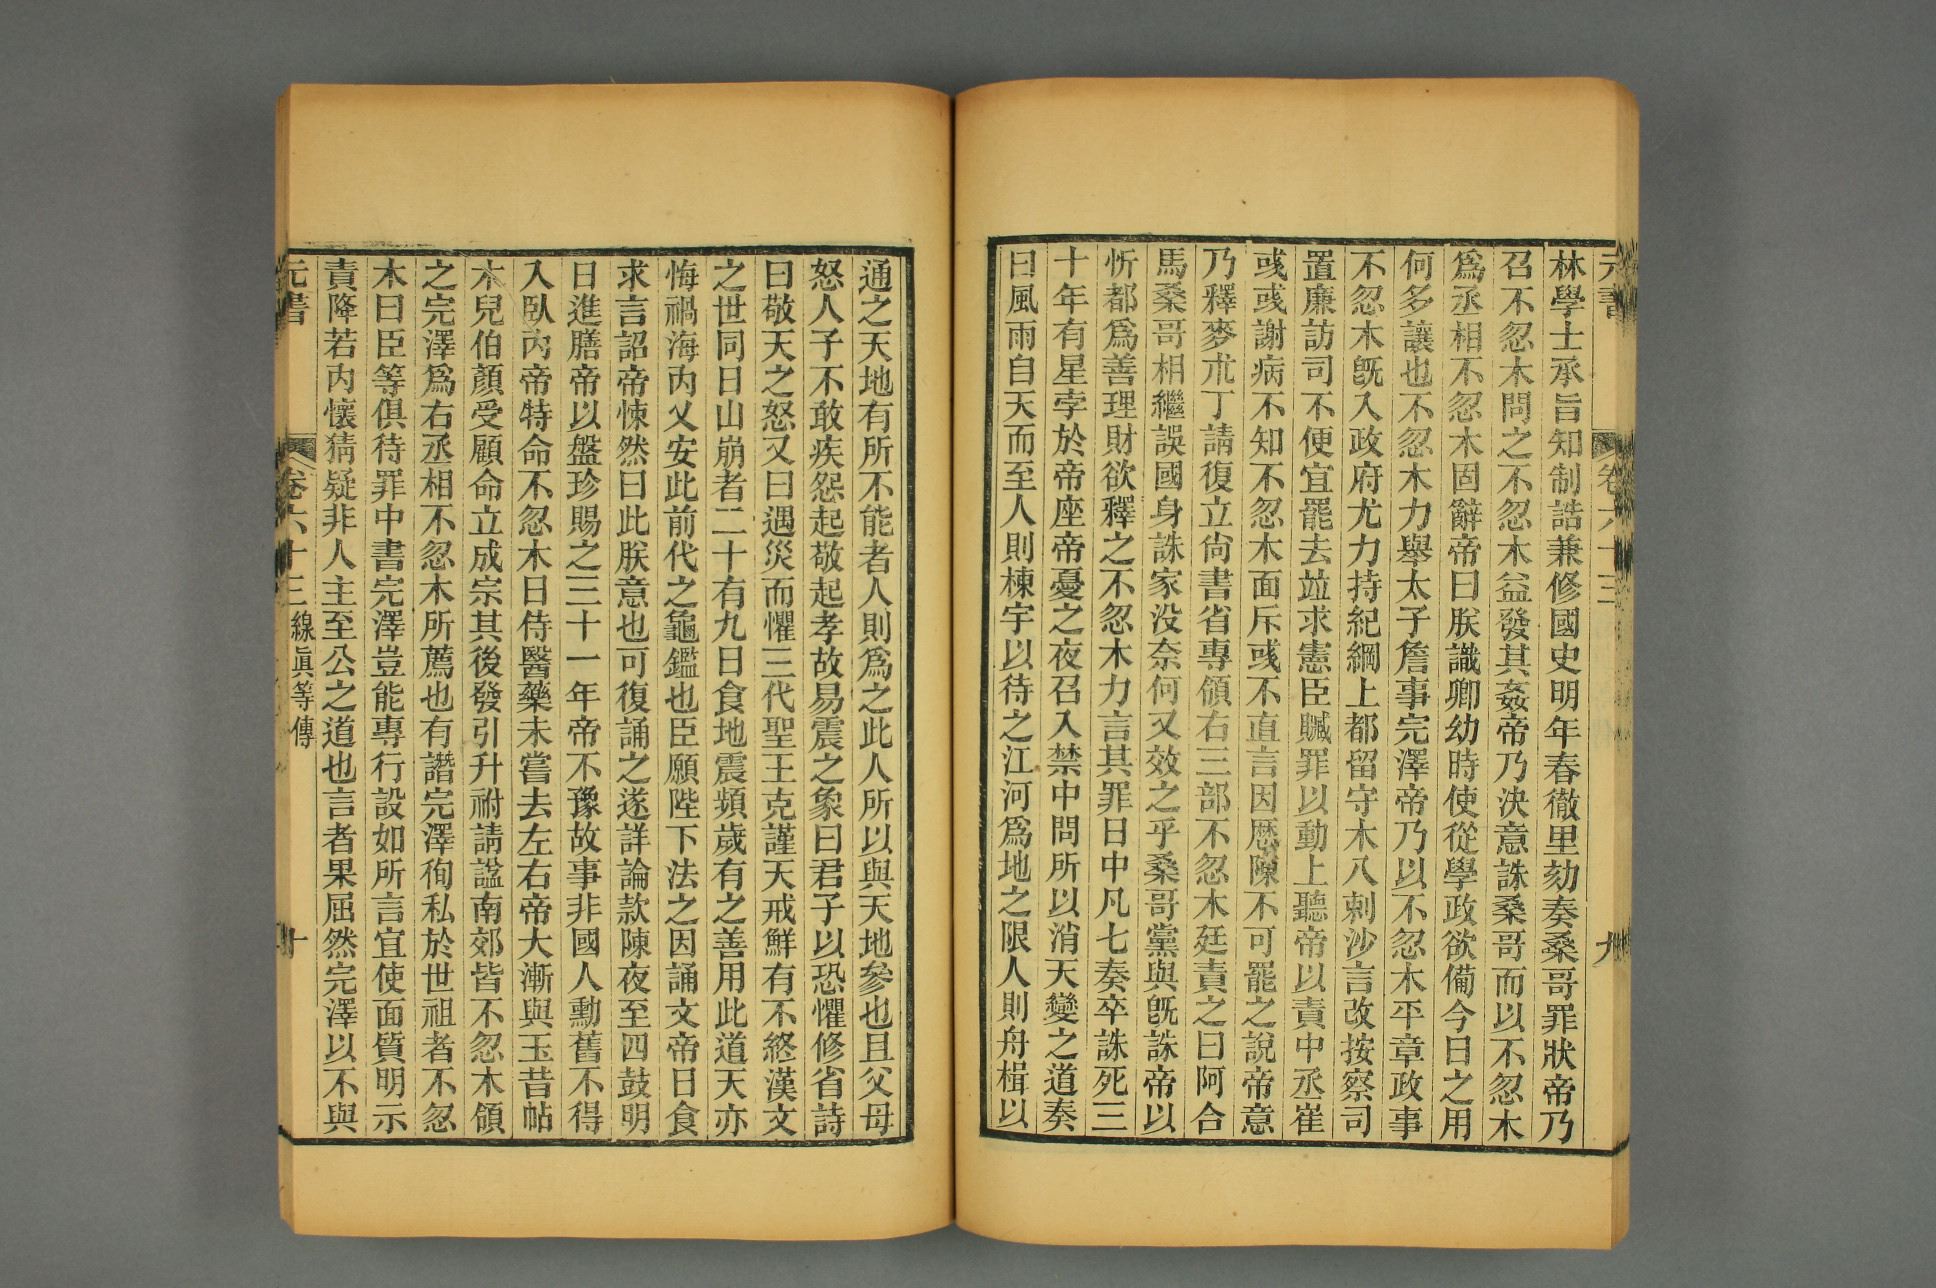 元書
卷六十三
九
林學士承旨知制誥兼修國史明年春徹里劾奏桑哥罪狀帝乃
召不忽木問之不忽木益發其姦帝乃決意誅桑哥而以不忽木
爲丞相不忽木固辭帝曰朕識卿幼時使從學政欲備今日之用
何多讓也不忽木力舉太子詹事完澤帝乃以不忽木平章政事
不忽木旣入政府尤力持紀綱上都留守木八剌沙言改按察司
置廉訪司不便宜罷去竝求憲臣贓罪以動上聽帝以責中丞崔
彧彧謝病不知不忽木面斥彧不直言因歷陳不可罷之說帝意
乃釋麥朮丁請復立尙書省專領右三部不忽木廷責之曰阿合
馬桑哥相繼誤國身誅家没奈何又效之乎桑哥黨與旣誅帝以
忻都爲善理財欲釋之不忽木力言其罪日中凡七奏卒誅死三
十年有星孛於帝座帝憂之夜召入禁中問所以消天變之道奏
曰風雨自天而至人則棟宇以待之江河爲地之限人則舟楫以
通之天地有所不能者人則爲之此人所以與天地參也且父母
怒人子不敢疾怨起敬起孝故易震之象曰君子以恐懼修省詩
曰敬天之怒又曰遇災而懼三代聖王克謹天戒鮮有不終漢文
之世同日山崩者二十有九日食地震頻歲有之善用此道天亦
悔禍海內乂安此前代之龜鑑也臣願陛下法之因誦文帝日食
求言詔帝悚然曰此朕意也可復誦之遂詳論款陳夜至四鼓明
日進膳帝以盤珍賜之三十一年帝不豫故事非國人勳舊不得
入臥內帝特命不忽木日侍醫藥未嘗去左右帝大漸與玉昔帖
木兒伯顏受顧命立成宗其後發引升祔請謚南郊皆不忽木領
之完澤爲右丞相不忽木所薦也有譖完澤徇私於世祖者不忽
木曰臣等俱待罪中書完澤豈能專行設如所言宜使面質明示
責降若內懷猜疑非人主至公之道也言者果屈然完澤以不與
元書
卷六十三
線眞等傳
十